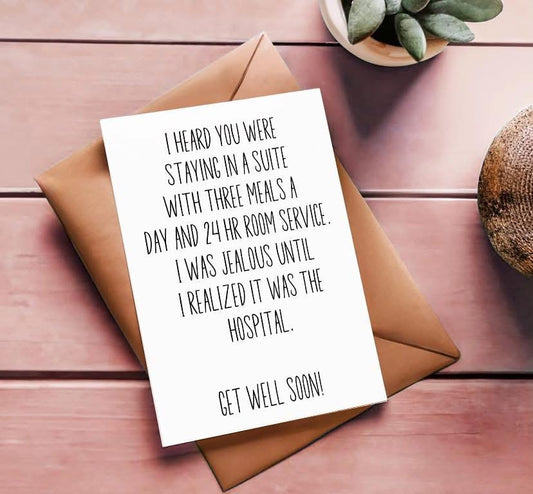 I HEARD YOU WERE
STAYING IN A SUITE
WITH THREE MEALS A
DAY AND 24 HR ROOM SERVICE.
I WAS JEALOUS UNTIL
I REALIZED IT WAS THE
HOSPITAL.
GET WELL SOON!